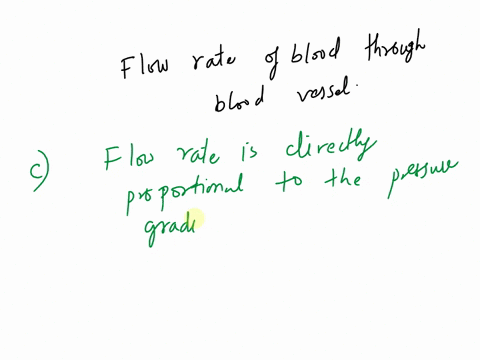 Flow rate of blood through
blood vessel.
c) Flow rate is directly
proportional to the pressure
gradi